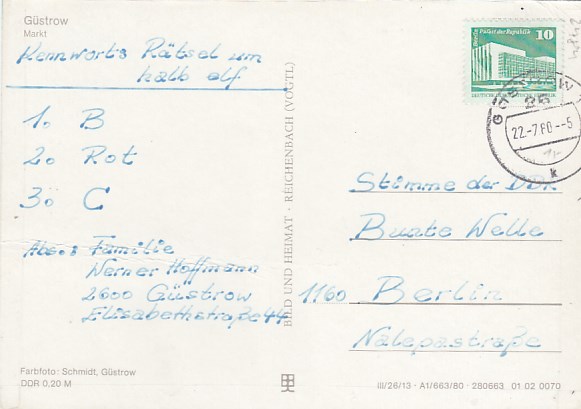 Güstrow
Markt
Kennwort: Rätsel um
halb elf
1. B
2. Rot
3. C
Abs.: Familie
Werner Hoffmann
2600 Güstrow
Elisabethstraße 44
Farbfoto: Schmidt, Güstrow
DDR 0,20 M
BILD UND HEIMAT · REICHENBACH (VOGTL)
Berlin Palast der Republik
10
DEUTSCHE DEMOKRATISCHE REPUBLIK
22-7.80--5
k
Stimme der DDR
Bunte Welle
1160 Berlin
Nalepastraße
III/26/13 · A1/663/80 · 280663 01 02 0070